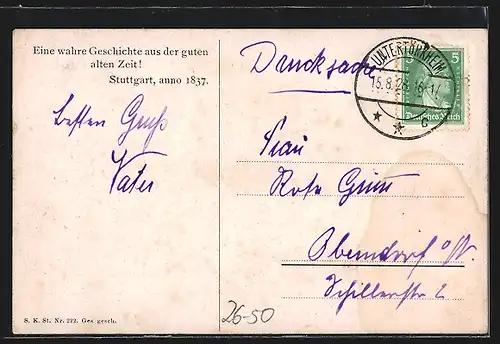 Eine wahre Geschichte aus der guten
alten Zeit!
Stuttgart, anno 1837.
besten Gruß
Vater
Drucksache
UNTERTÜRKHEIM
15.8.26
5 5
Deutsches Reich
Frau
Rosa Grim
Oberndorf a/N.
Schillerstr 2
S. K. St. Nr. 222. Ges. gesch.
26-50